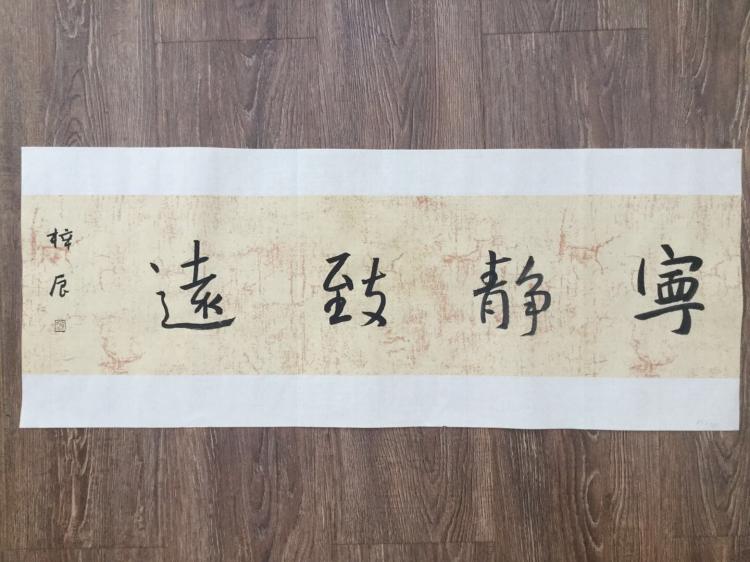 寧静致遠
梓辰